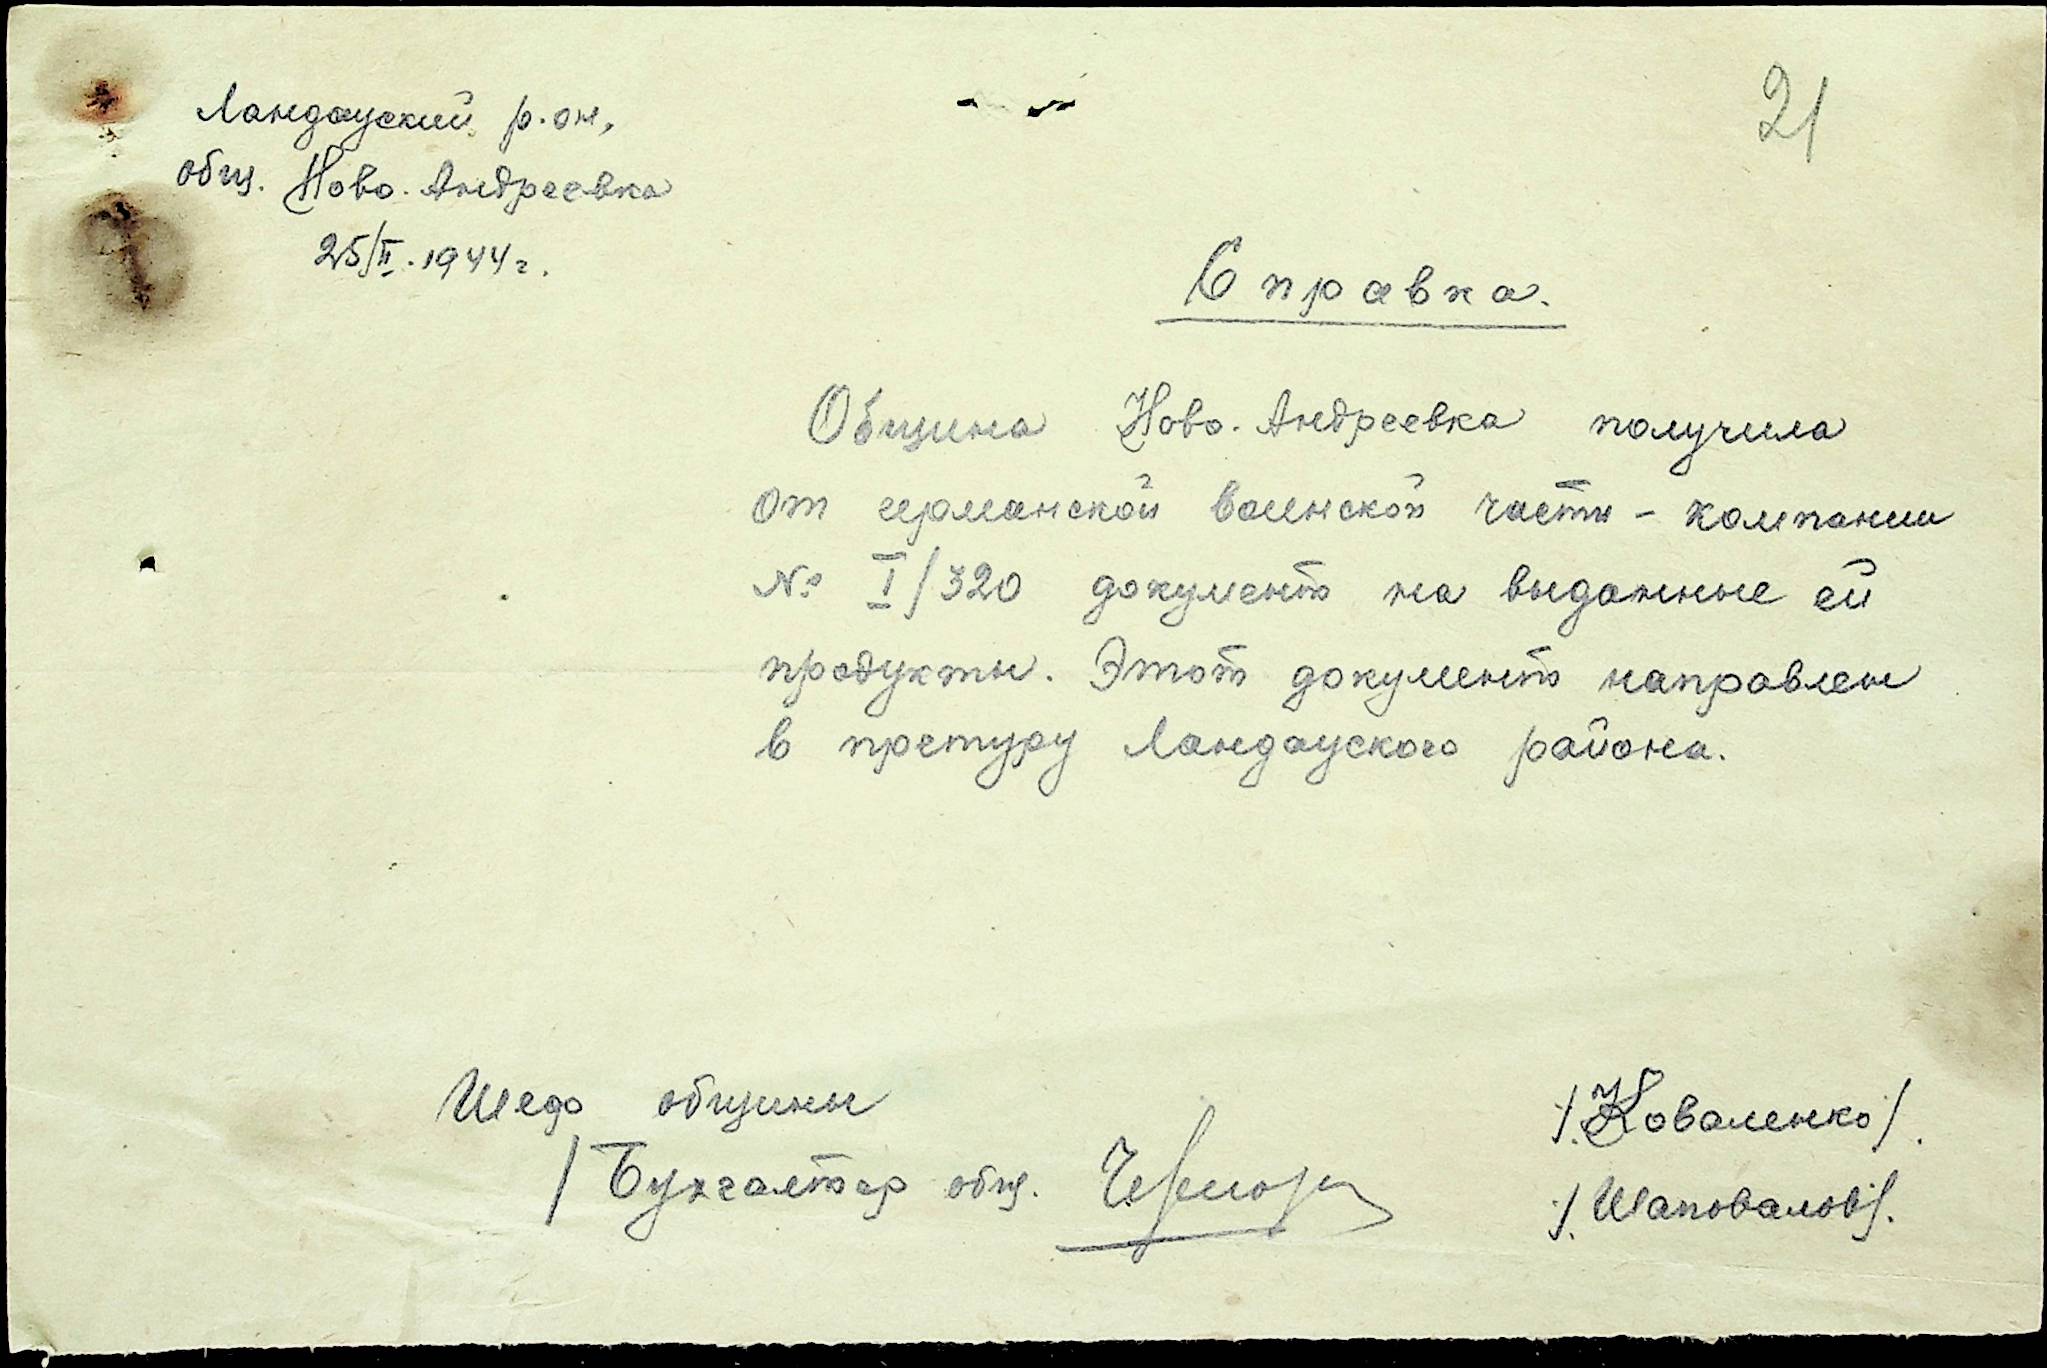 21
Ландауский р-он,
общ. Ново-Андреевка
25/II.1944 г.
Справка.
Община Ново-Андреевка получила
от германской воинской части - компании
№ I/320 документ на выданные ей
продукты. Этот документ направлен
в претуру Ландауского района.
Шеф общины /.Коваленко/.
/ Бухгалтер общ. /.Шаповалов/.